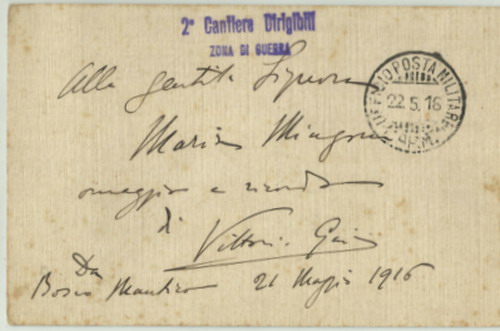 2° Cantiere Dirigibili
ZONA DI GUERRA
UFFICIO POSTA MILITARE
22.5.16
Alla gentile Signora
Maria
omaggio e ricordo
di
Vittorio
Da
Bosco Mantico 21 Maggio 1916